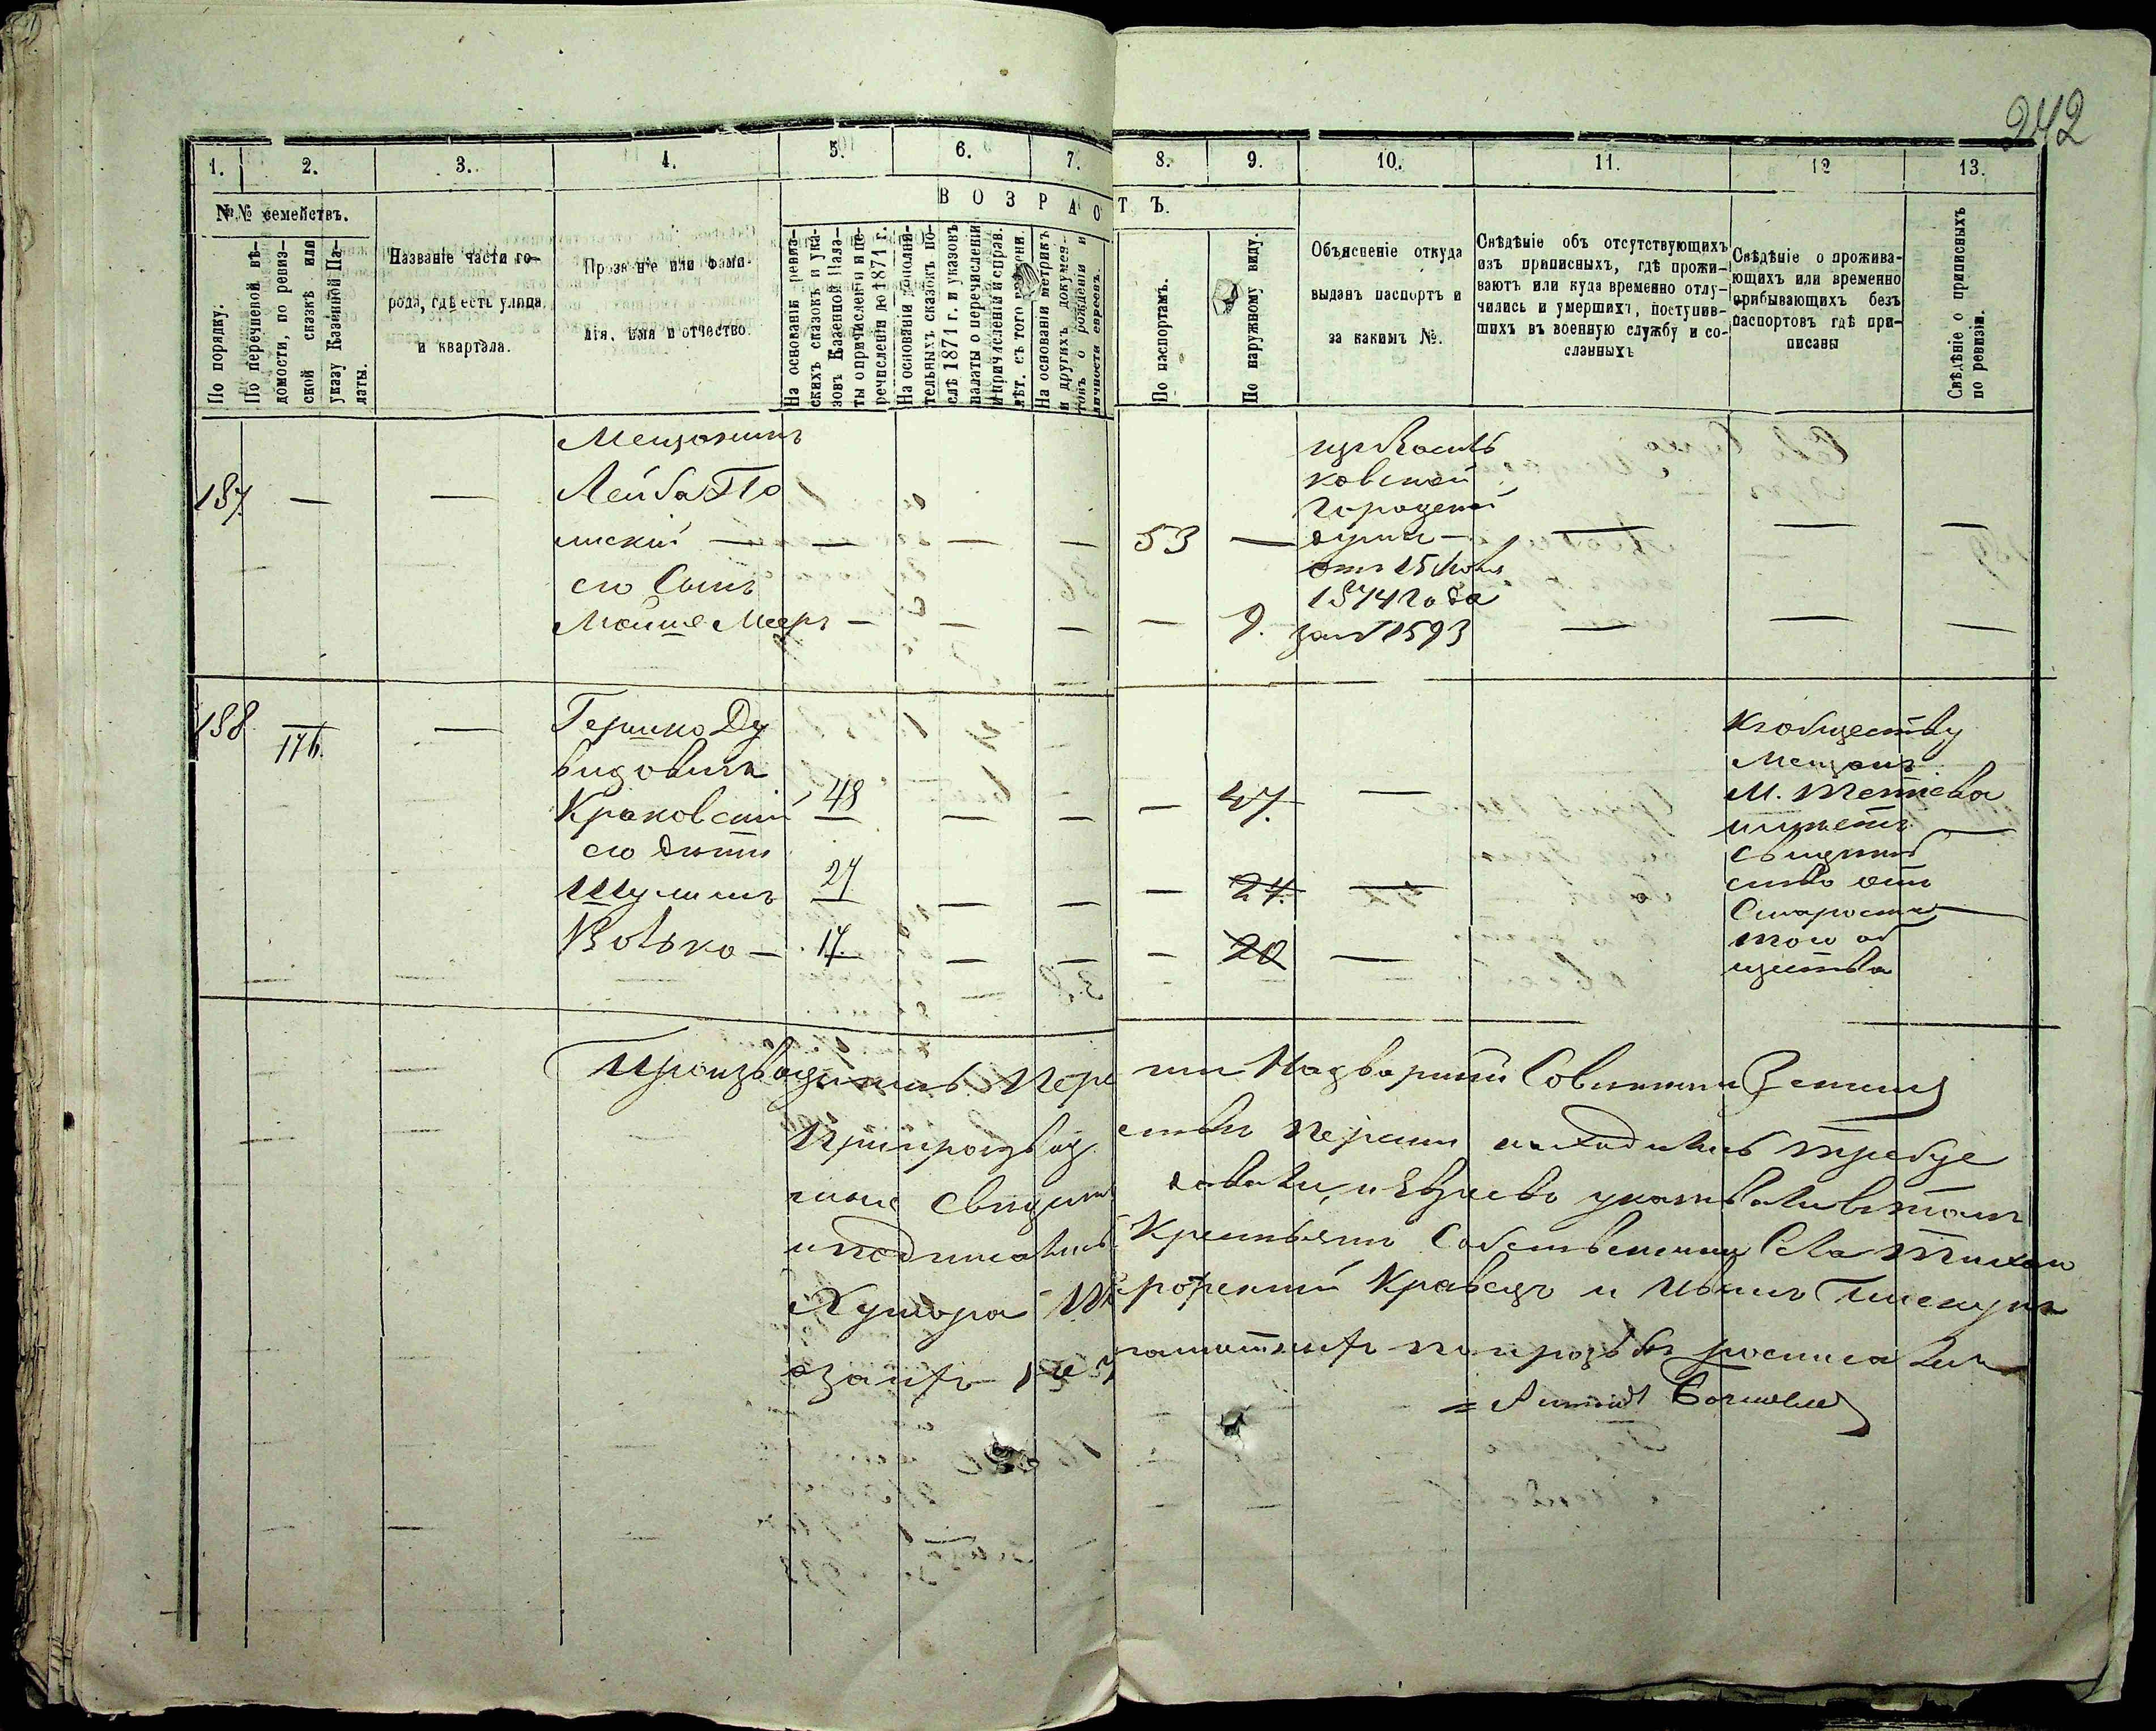 242
1. 2. 3. 4. 5. 6. 7. 8. 9. 10. 11. 12 13.
№№ семействъ.
ВОЗРАСТЪ.
По порядку:
По перечневой вѣ-
домости, по ревиз-
ской сказкѣ или
указу Казенной Па-
латы.
Названіе части го-
рода, гдѣ есть улица,
и квартала.
Прозваніе или фами-
лія, имя и отчество.
На основаніи ревиз-
скихъ сказокъ и ука-
зовъ Казенной Пала-
ты о причисленіи и пе-
речисленіи до 1871 г.
На основаніи дополни-
тельныхъ сказокъ по-
слѣ 1871 г. и указовъ
палаты о перечисленіи
и причисленіи и справ.
лѣт. съ того времени.
На основаніи метрикъ
и другихъ докумен-
товъ о рожденіи и
личности евреевъ.
По паспортамъ.
По наружному виду.
Объясненіе откуда
выданъ паспортъ и
за какимъ №.
Свѣдѣніе объ отсутствующихъ
изъ приписныхъ, гдѣ прожи-
ваютъ или куда временно отлу-
чились и умершихъ, поступив-
шихъ въ военную службу и со-
сланныхъ
Свѣдѣніе о прожива-
ющихъ или временно
прибывающихъ безъ
паспортовъ гдѣ при-
писаны
Свѣдѣніе о приписныхъ
по ревизіи.
Мещанинъ
187. — — Лейба По
лискій — — — — 53 — — — —
его Сынъ
Мойше Мееръ — — — — 9. — — —
изъ Василь
ковской
Городской
думы —
отъ 15 Іюля
1874 года
за № 1593
188. 176. — Гершко Ду
видовичъ
Краковскій 48 — — — 47. —
его дѣти
Шулимъ 27 — — — 24. —
Волько — 17. — — — 20 —
къ обществу
Мещанъ
М. Тетіева
имѣетъ
свидѣтель
ство отъ
Старосты
того об
щества
Производилъ пере
ти Надворный Совѣтникъ
При производ
ствѣ переписи находились требуе
мые свидѣтели
указывали въ томъ
и подписались
Крестьяне Собственники Села
Хутора
Кравецъ и
росписались